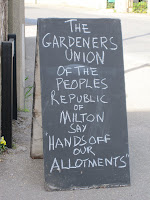 THE
GARDENERS
UNION
OF THE
PEOPLES
REPUBLIC
OF
MILTON
SAY
"HANDS OFF
OUR
ALLOTMENTS"